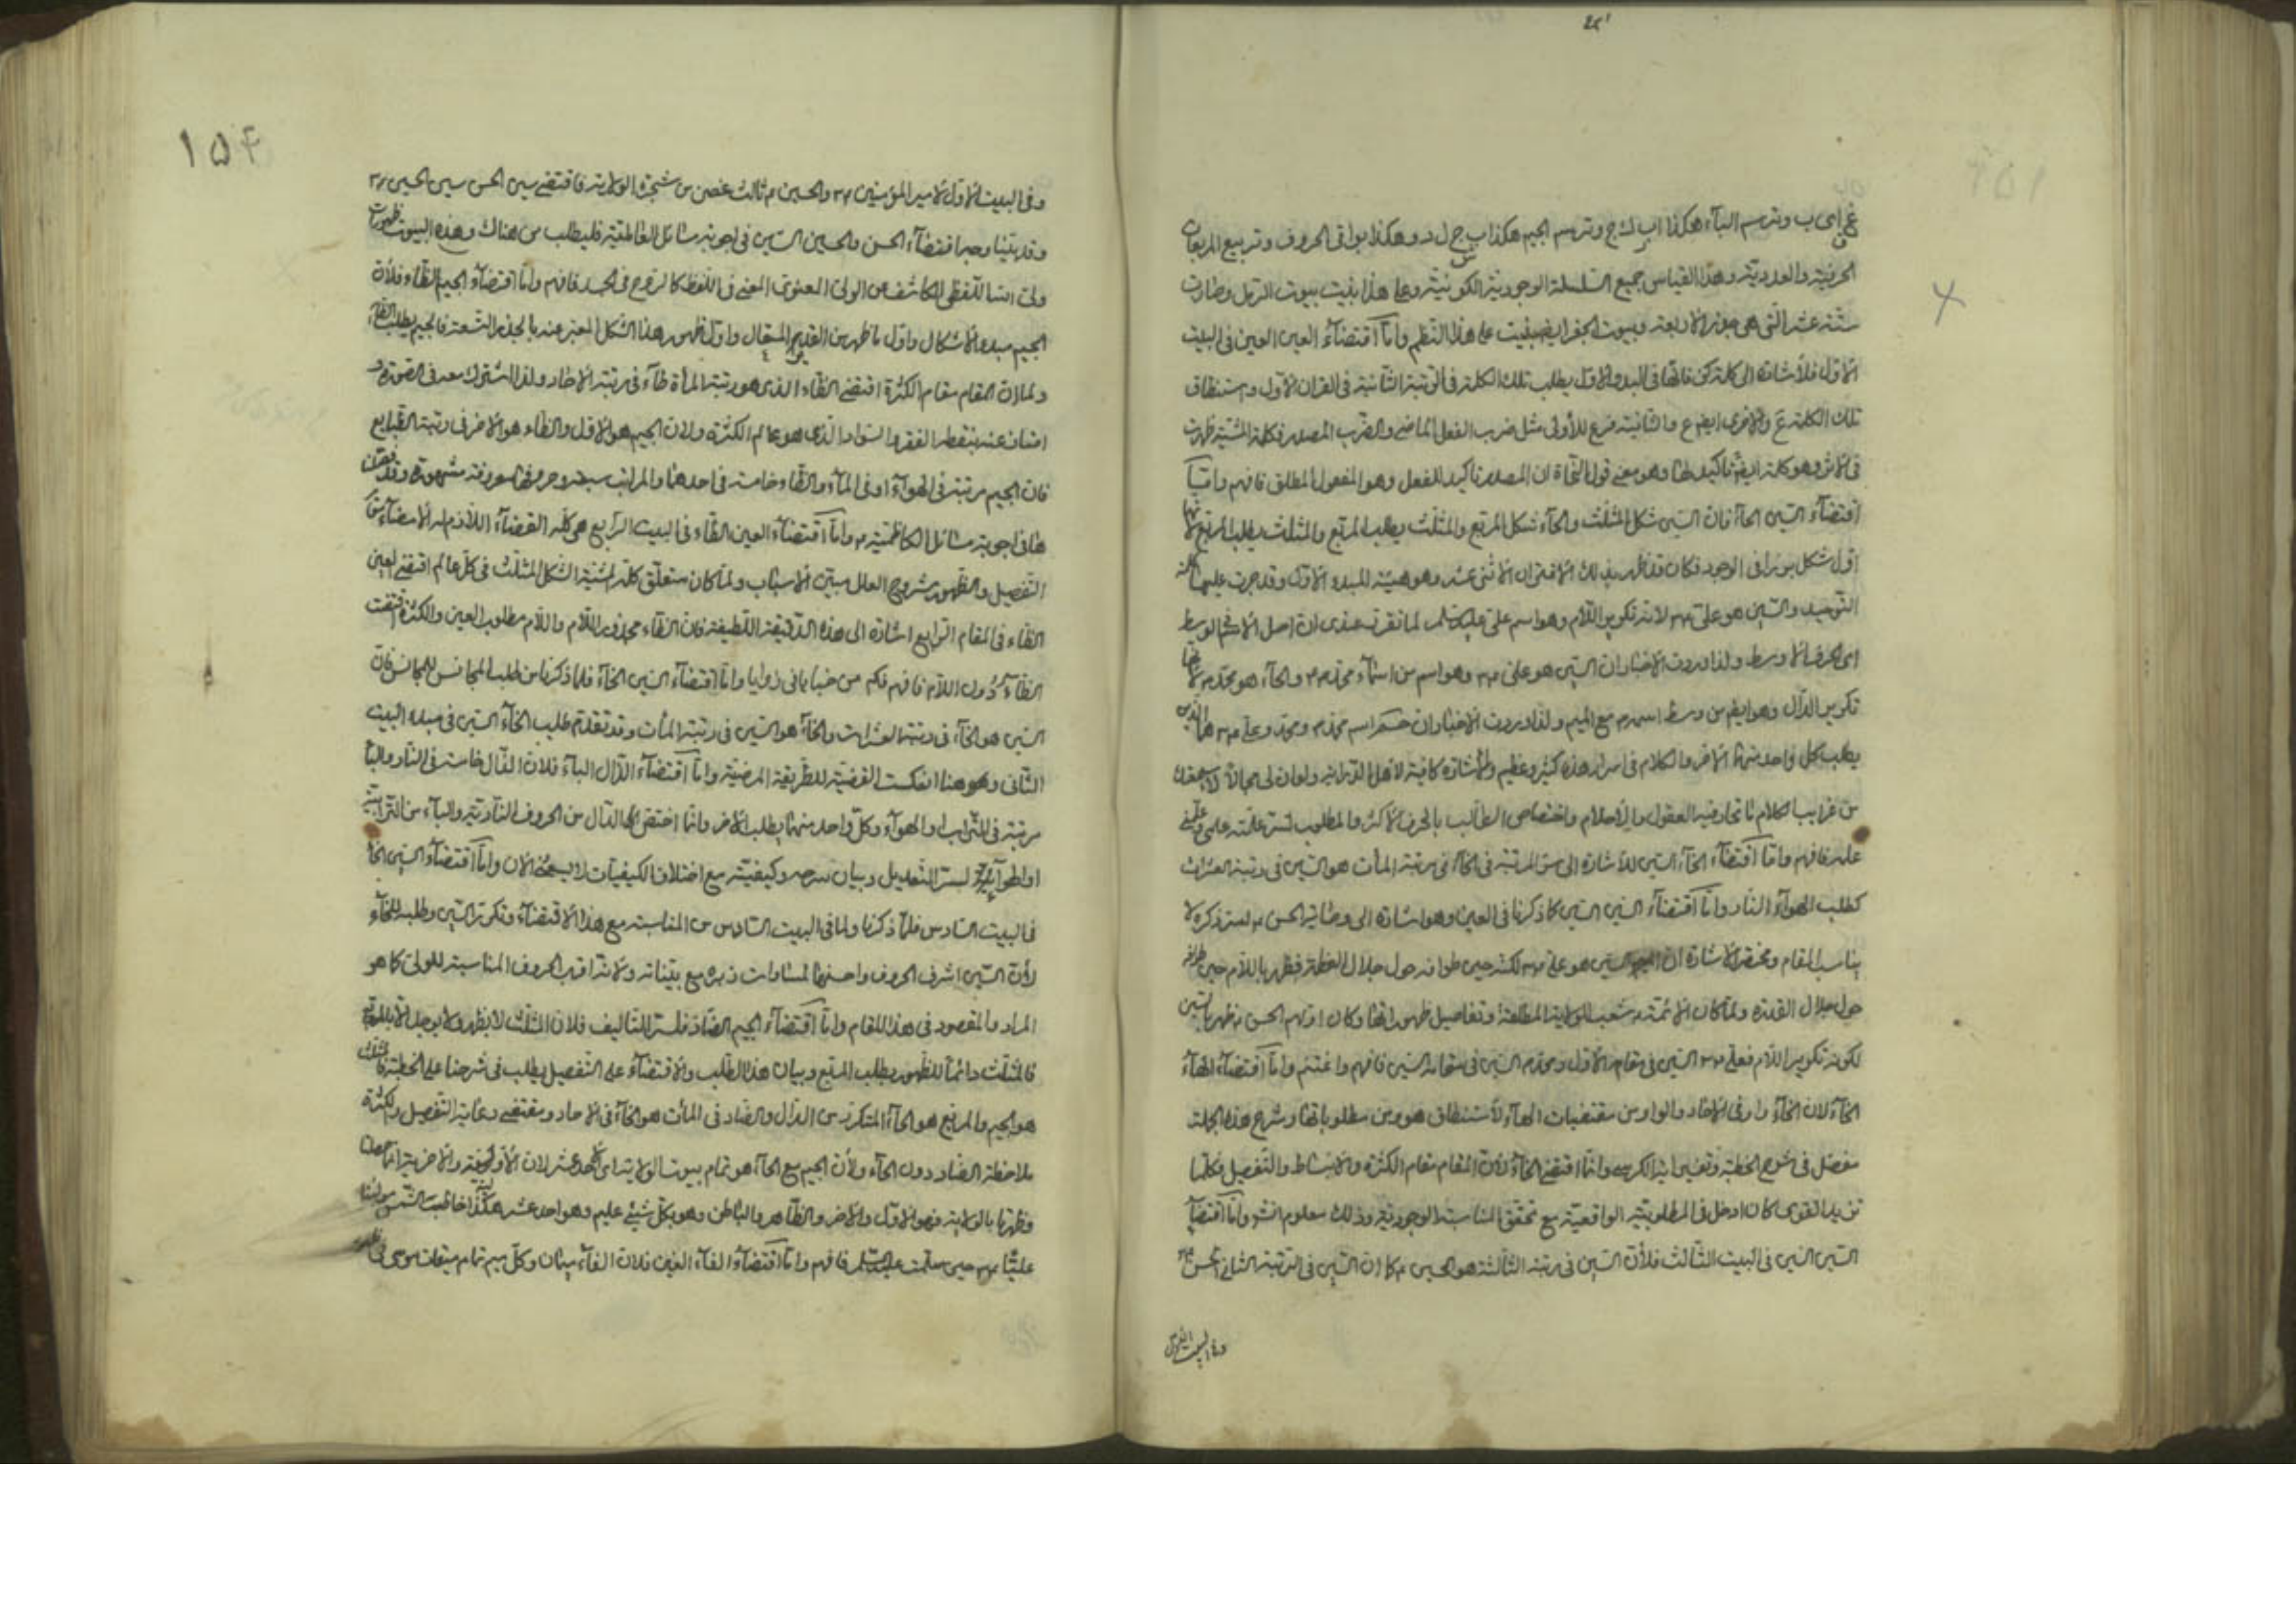 غ اى ب وترسم البآء هكذا اب ك ج وترسم الجيم هكذا ب ج ل د وهكذا بواقى الحروف وتربيع المربعات
الحرفية والعددية وهذا القياس جميع السلسلة الوجودية الكونية وعلى هذا بنيت بيوت الرمل وصارت
ستة عشر التى هى جذرها الاربعة وبيوت الجفر ايضا بنيت على هذا النظم واما اقتضاء العين العين فى البيت
الاول فلاشارة الى كلمة كن فانها فى البدء الاول يطلب تلك الكلمة فى الرتبة الثانية فى القران الاول واستنطاق
تلك الكلمة ع والاخرى ايضا ع والثانية فرع للاولى مثل ضرب الفعل الماضى والضرب المصدر فكلمة المشية ظهرت
فى الاثر وهو كلمة ايضا تاكيد لها وهو معنى قول النحاة ان المصدر تاكيد للفعل وهو المفعول المطلق فافهم واما
اقتضاء السين الحآء فان السين شكل المثلث والحآء شكل المربع والمثلث يطلب المربع والمثلث يطلب المربع لانهما
اول شكل برزا فى الوجود فكان قد ظهر بذلك الاقتران الاثنى عشر وهو هيئة المبدء الاول وقد جرت عليها كلمة
التوحيد والسين هو على ع لانه تكوير اللام وهو اسم على عليه السلم لما تقرر عندى ان اصل الاسم الوسط
اى الحرف الاوسط ولذا وردت الاخبار ان السين هو على ع وهو اسم من اسماء محمد ص والحآء هو محمد ص لانها
تكوير الدال وهو ايضا من وسط اسمه ص مع الميم ولذا وردت الاخبار ان حم اسم محمد ص ومحمد وعلى ع هما اللذين
يطلب كل واحد منهما الاخر والكلام فى اسرار هذه كثير وعظيم والاشارة كافية لاهل الدراية ولو ان لى مجالا لاسمعتك
من غرايب الكلام ما تحار فيه العقول والاحلام واختصاص الطالب بالحرف الاكثر والمطلوب لستر علته على
عليه فافهم واما اقتضاء الحآء السين للاشارة الى المرتبة فى الحآء فى مرتبة المات هو السين فى رتبة العشرات
كطلب الهوآء النار واما اقتضاء السين السين كما ذكرنا فى العين وهو اشارة الى وصاية الحسن ع لستر ذكره لا
يناسب المقام ومختصر الاشارة ان السين هو على ع لكنه حين طوافه حول جلال العظمة فظهر باللام حين طوافه
حول جلال القدرة ولما كان الائمة ع شعب الولاية المطلقة وتفاصيل ظهوراتها وكان اولهم الحسن ع ظهر بالسين
لكونه تكوير اللام فعلى ع السين فى مقامه الاول ومحمد ص السين فى مقامه السين فافهم واغتنم واما اقتضاء الهآء
الخآء لان الخآء واو فى الاحاد والواو من مقتضيات الهآء لاستنطاق هو ومن مطلوباتها وشرح هذا الجملة
مفصل فى شرح الخطبة وتفسير اية الكرسى وانما اقتضى الخآء لان المقام مقام الكثرة والانبساط والتفصيل فكلما
تزيد القوى كان ادخل فى المطلوبية الواقعية مع تحقق المناسبة الوجودية وذلك معلوم انشاء واما اقتضاء
السين السين فى البيت الثالث فلان السين فى رتبة الثالثة هو الحسين ع كما ان السين فى الرتبة الثانى الحسن ع
وفى البيت الاول
١٥٤
وفى البيت الاول لامير المؤمنين ع والحسين ع ثالث غصن من شجرة الولاية فاقتضى سين الحسن سين الحسين ع
وقد بينا وجه اقتضاء الحسن والحسين السين فى اجوبة مسائل الفاطمية فليطلب من هناك وهذه البيوت ظهورات
ولى الله اللفظى الكاشف عن الولى المعنوى المعنى فى اللفظ كالروح فى الجسد فافهم واما اقتضاء الجيم الظاء فلان
الجيم مبدء الاشكال واول ما ظهر من القديم المتعال واول ظهور هذا الشكل المعبر عنه بالجذر التسعة فالجيم يطلب الظاء
ولما ان المقام مقام الكثرة اقتضى الظاء الذى هو رتبة المأة طاء فى مرتبة الاحاد ولذا اشترك معه فى الصورة و
امتاز عنه بنقطة الفقر والسواد الذى هو عالم الكثرة ولان الجيم هو الاول والظاء هو الاخر فى رتبة الطبايع
فان الجيم مرتبة فى الهوآء او فى المآء والظاء خامسة فى احدهما والمراتب سبعة وحروفها معروفة مشهورة وقد فصلنا
ها فى اجوبة مسائل الكاظمية ع واما اقتضاء العين الظاء فى البيت الرابع هى كلمة القضاء اللازم له الامضاء مقام
التفصيل والظهور مشروح العلل مبين الاسباب ولما كان متعلق كلمة المشية الشكل المثلث فى كل عالم اقتضى العين
الظاء فى المقام الرابع اشارة الى هذه الدقيقة اللطيفة فان الظاء مجذور اللام واللام مطلوب العين والكثرة اقتضت
الظاء دون اللام فافهم فكم من خبايا فى زوايا واما اقتضاء السين الخاء فلما ذكرنا من طلب المجانس للمجانس فان
السين هو الخآء فى رتبة العشرات والخآء هو السين فى رتبة المات وقد تقدم طلب الخآء السين فى مبدء البيت
الثانى وهو هنا انعكست القضية للطريقة المرضية واما اقتضاء الذال البآء فلان الذال خامسة فى النار والبآء
مرتبة فى التراب او الهوآء وكل واحد منهما يطلب الاخر وانما اختص الذال من الحروف النارية والبآء من الترابية
او الهوآئية لستر التعديل وبيان سره وكيفيته مع اختلاف الكيفيات لا يسعنى الان واما اقتضاء السين الخآء
فى البيت السادس فلما ذكرنا ولما فى البيت السادس من المناسبة مع هذا الاقتضاء وتكرر السين وطلبه للخآء
لان السين اشرف الحروف واحسنها لمساوات زبره مع بيناته ولانه اقرب الحروف المناسبة للولى كما هو
المراد والمقصود فى هذا المقام واما اقتضاء الجيم الضاد فلستر التاليف فلان المثلث لا يظهر ولا يوجد الا بالمربع
فالمثلث دائما للظهور يطلب المربع وبيان هذا الطلب والاقتضاء على التفصيل يطلب فى شرحنا على الخطبة فالمثلث
هو الجيم والمربع هو الحآء المتكرر من الدال والضاد فى المات هو الحآء فى الاحاد ومقتضى رعاية التفصيل والكثرة
ملاحظة الضاد دون الحآء ولان الجيم مع الحآء هو تمام بيوت الولاية اى احد عشر لان الاولية والاخرية انما حصلا
وظهرتا بالولاية فهو الاول والاخر والظاهر والباطن وهو بكل شيئ عليم وهو احد عشر هكذا خاطبت الشمس مولينا
عليا ع حين سلمت عليه السلم فافهم واما اقتضاء الفآء الغين فلان الفآء ميمان وكل ميم تمام ميقات موسى فى